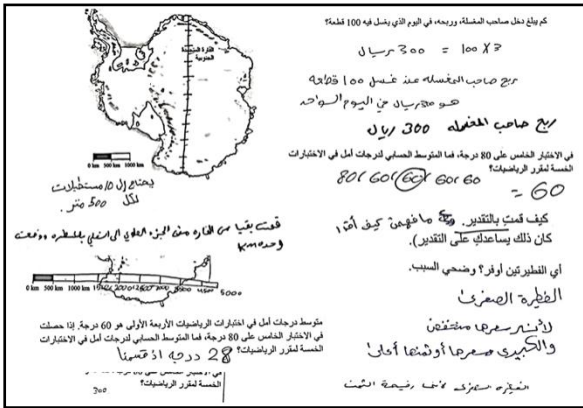 كم يبلغ دخل صاحب المغسلة، وربحه، في اليوم الذي يغسل فيه 100 قطعة؟
100 X 3 = 300 ريال
ربح صاحب المغسله عند غسل 100 قطعه
هو ريال في اليوم الواحد
ربح صاحب المغسله 300 ريال
في الاختبار الخامس على 80 درجة، فما المتوسط الحسابي لدرجات أمل في الاختبارات
الخمسة لمقرر الرياضيات؟
80، 60، 60، 60، 60
= 60
كيف قمت بالتقدير. ما فهمت كيف أقدر
كان ذلك يساعدك على التقدير).
أي الفطيرتين أوفر؟ وضحي السبب.
الفطيرة الصغرى
لأن سعرها منخفض
والكبيرة سعرها أو ثمنها أعلى
الفطيره الصغرى رخيصة الثمن
القارة المتجمدة
الجنوبية
0 500 km 1000 km
يحتاج إلى 10 مستطيلات
لكل 500 متر
0 500 km 1000 km 5000
متوسط درجات أمل في اختبارات الرياضيات الأربعة الأولى هو 60 درجة. إذا حصلت
في الاختبار الخامس على 80 درجة، فما المتوسط الحسابي لدرجات أمل في الاختبارات
الخمسة لمقرر الرياضيات؟ 28 درجه
الخمسة لمقرر الرياضيات؟
300